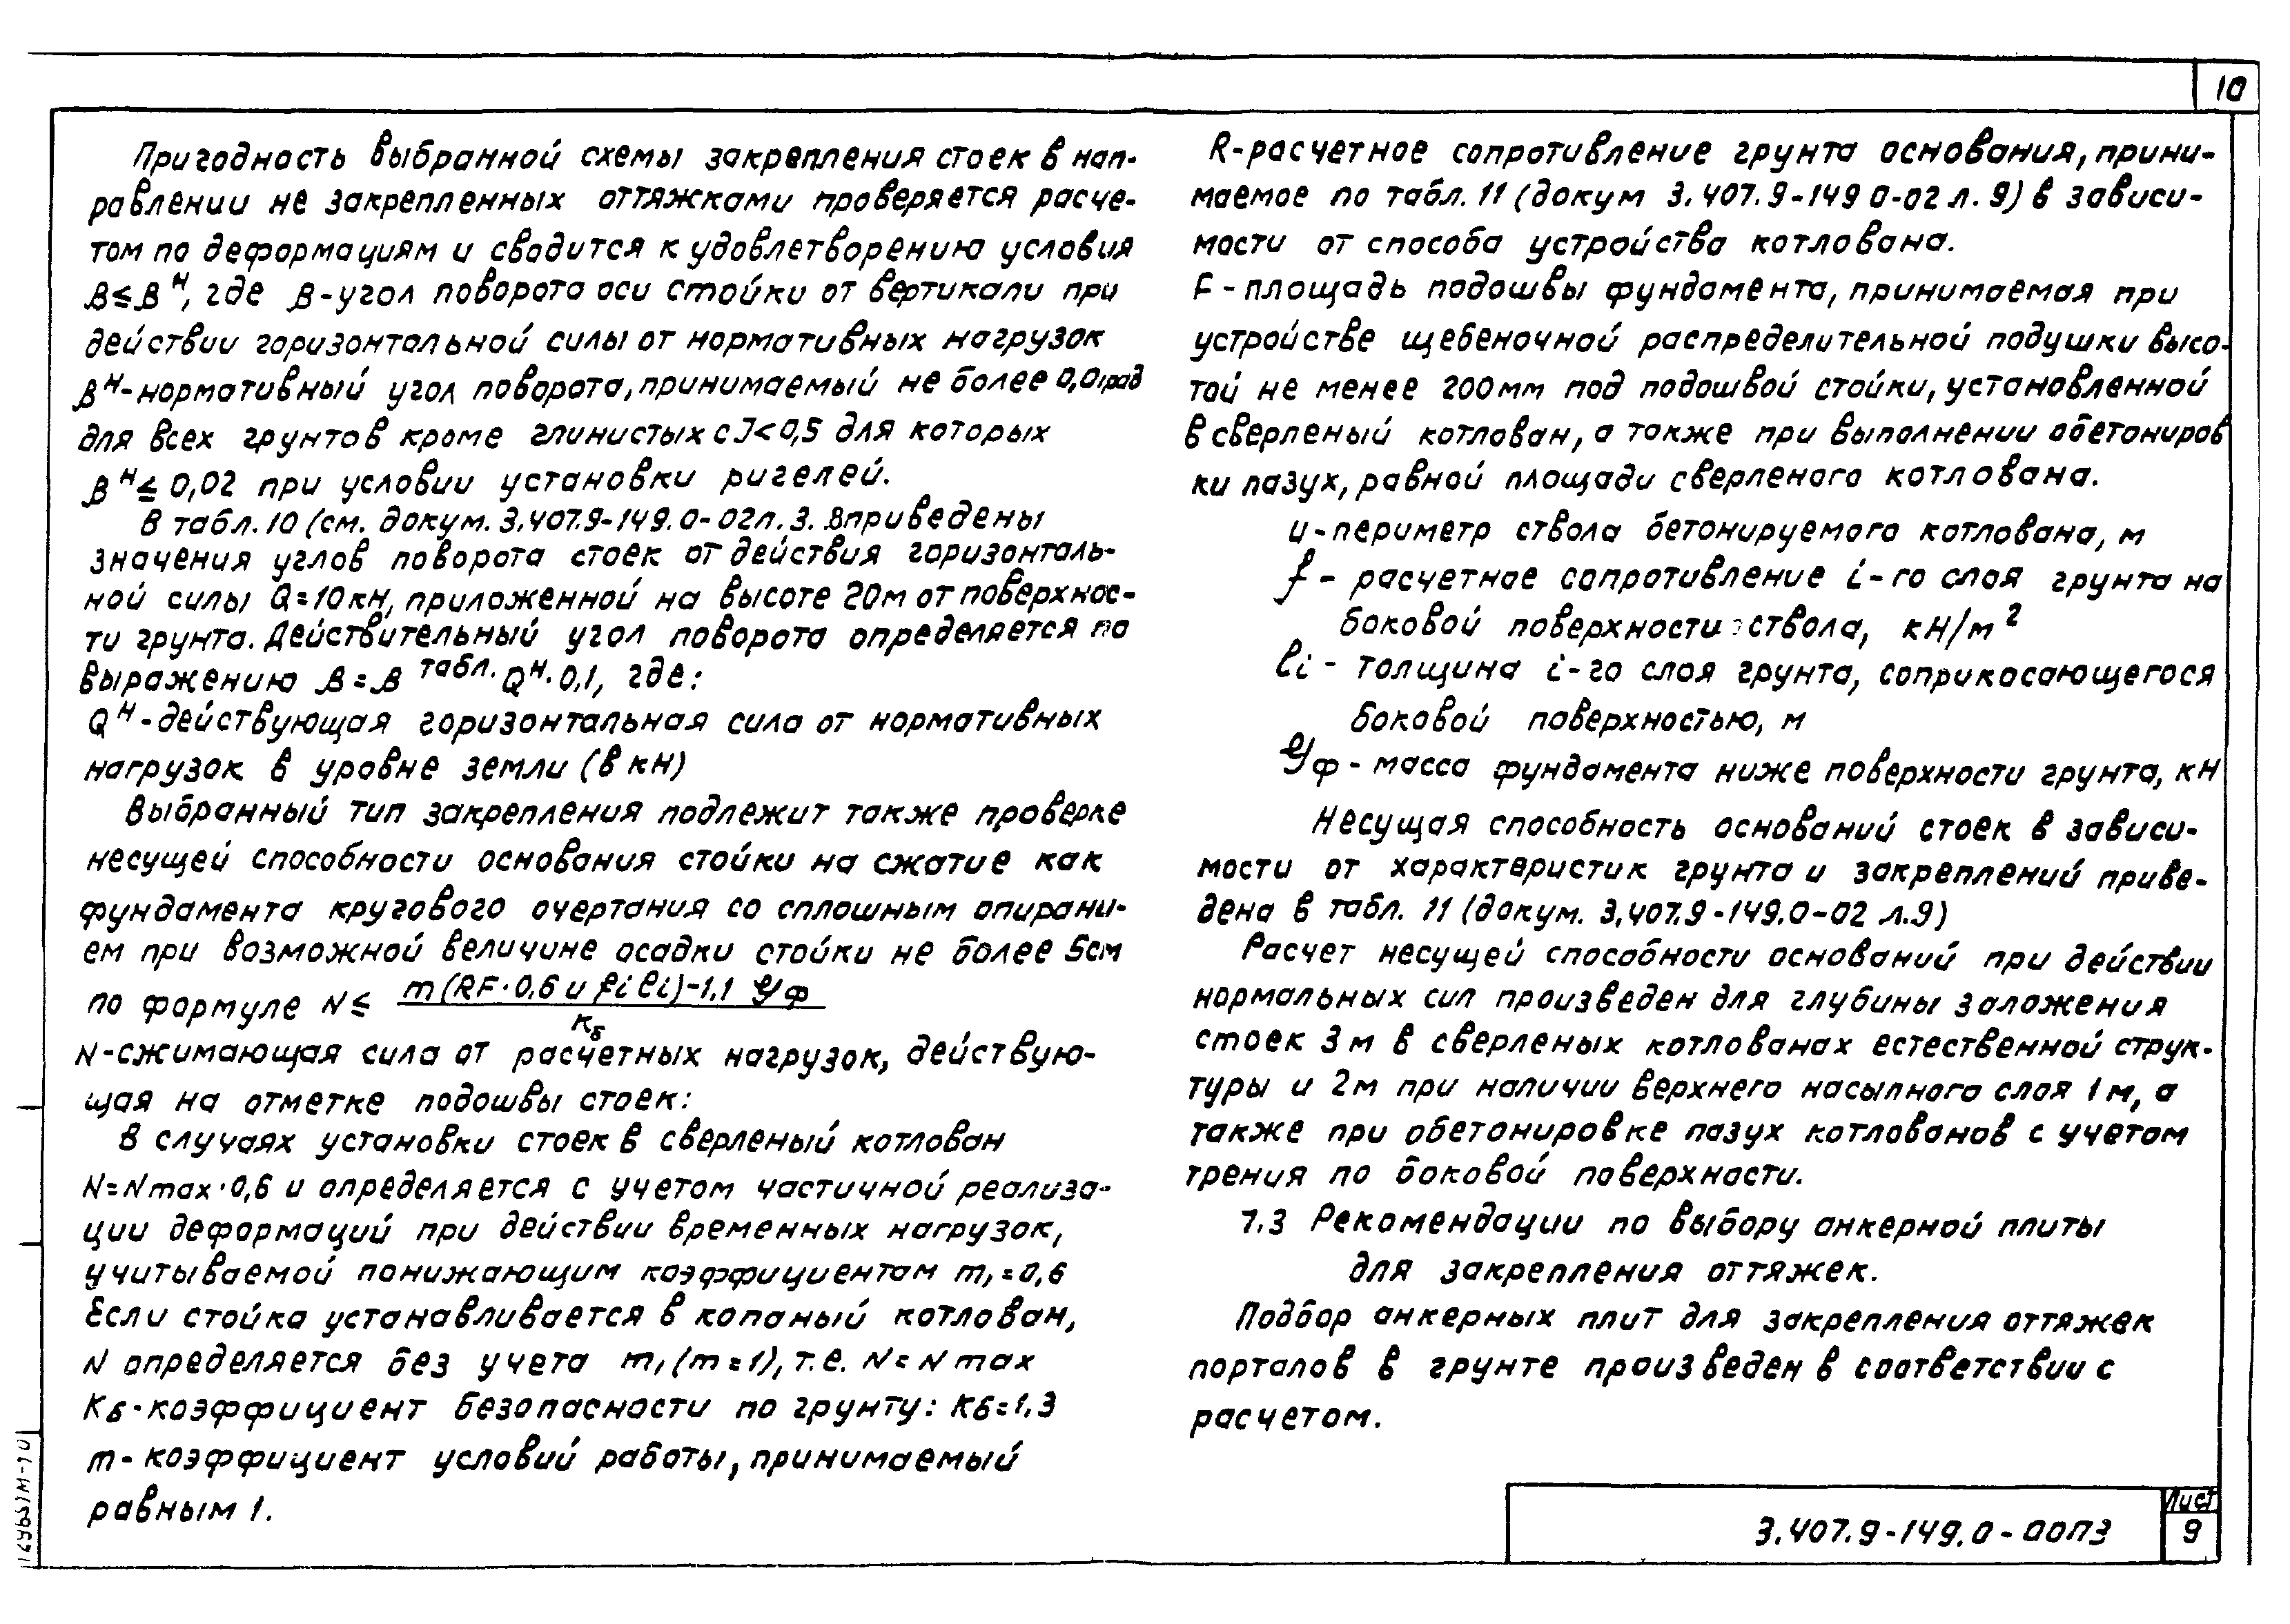 10
Пригодность выбранной схемы закрепления стоек в нап-
равлении не закрепленных оттяжками проверяется расче-
том по деформациям и сводится к удовлетворению условия
β ≤ β^н, где β-угол поворота оси стойки от вертикали при
действии горизонтальной силы от нормативных нагрузок
β^н-нормативный угол поворота, принимаемый не более 0,01рад
для всех грунтов кроме глинистых с J<0,5 для которых
β^н ≤ 0,02 при условии установки ригелей.
В табл. 10 (см. докум. 3.407.9-149.0-02л.3. 8приведены
значения углов поворота стоек от действия горизонталь-
ной силы Q=10кн, приложенной на высоте 20м от поверхнос-
ти грунта. Действительный угол поворота определяется по
выражению β=β^табл. Q^н. 0,1, где:
Q^н-действующая горизонтальная сила от нормативных
нагрузок в уровне земли (в кН)
Выбранный тип закрепления подлежит также проверке
несущей способности основания стойки на сжатие как
фундамента кругового очертания со сплошным опирани-
ем при возможной величине осадки стойки не более 5см
по формуле N ≤ m(RF·0,6 u fi ℓi)-1,1 𝒢ф / Кб
N-сжимающая сила от расчетных нагрузок, действую-
щая на отметке подошвы стоек:
В случаях установки стоек в сверленый котлован
N=Nmax·0,6 и определяется с учетом частичной реализа-
ции деформаций при действии временных нагрузок,
учитываемой понижающим коэффициентом m₁=0,6
Если стойка устанавливается в копаный котлован,
N определяется без учета m₁(m=1), т.е. N=Nmax
Кб-коэффициент безопасности по грунту: Кб=1,3
m-коэффициент условий работы, принимаемый
равным 1.
R-расчетное сопротивление грунта основания, прини-
маемое по табл. 11 (докум 3.407.9-149 0-02 л. 9) в зависи-
мости от способа устройства котлована.
F-площадь подошвы фундамента, принимаемая при
устройстве щебеночной распределительной подушки высо-
той не менее 200мм под подошвой стойки, установленной
в сверленый котлован, а также при выполнении обетониров
ки пазух, равной площади сверленого котлована.
u-периметр ствола бетонируемого котлована, м
f - расчетное сопротивление i-го слоя грунта на
боковой поверхности ствола, кН/м²
ℓi - толщина i-го слоя грунта, соприкасающегося
боковой поверхностью, м
𝒢ф - масса фундамента ниже поверхности грунта, кН
Несущая способность оснований стоек в зависи-
мости от характеристик грунта и закреплений приве-
дена в табл. 11 (докум. 3.407.9-149.0-02 л.9)
Расчет несущей способности оснований при действии
нормальных сил произведен для глубины заложения
стоек 3м в сверленых котлованах естественной струк-
туры и 2м при наличии верхнего насыпного слоя 1м, а
также при обетонировке пазух котлованов с учетом
трения по боковой поверхности.
7.3 Рекомендации по выбору анкерной плиты
для закрепления оттяжек.
Подбор анкерных плит для закрепления оттяжек
порталов в грунте произведен в соответствии с
расчетом.
3.407.9-149.0-00ПЗ
Лист
9